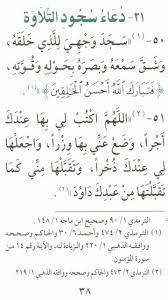 ٢١- دُعَاءُ سُجُودِ التِّلَاوَةِ
٥٠-(١) «سَجَدَ وَجْهِيَ لِلَّذِي خَلَقَهُ،
وَشَقَّ سَمْعَهُ وَبَصَرَهُ بِحَوْلِهِ وَقُوَّتِهِ،
﴿فَتَبَارَكَ اللَّهُ أَحْسَنُ الْخَالِقِينَ﴾» (١).
٥١-(٢) «اللَّهُمَّ اكْتُبْ لِي بِهَا عِنْدَكَ
أَجْرًا، وَضَعْ عَنِّي بِهَا وِزْرًا، وَاجْعَلْهَا
لِي عِنْدَكَ ذُخْرًا، وَتَقَبَّلْهَا مِنِّي كَمَا
تَقَبَّلْتَهَا مِنْ عَبْدِكَ دَاوُدَ» (٢).
الترمذي ١/٩٠ وصحيح ابن ماجه ١/١٤٨.
(١) الترمذي ٢/٤٧٤ وأحمد ٦/٣٠ والحاكم وصححه
ووافقه الذهبي ١/٢٢٠ والزيادة له، والآية رقم ١٤ من
سورة المؤمنون.
(٢) الترمذي ٢/٤٧٣ والحاكم وصححه ووافقه الذهبي ١/٢١٩.
٣٨